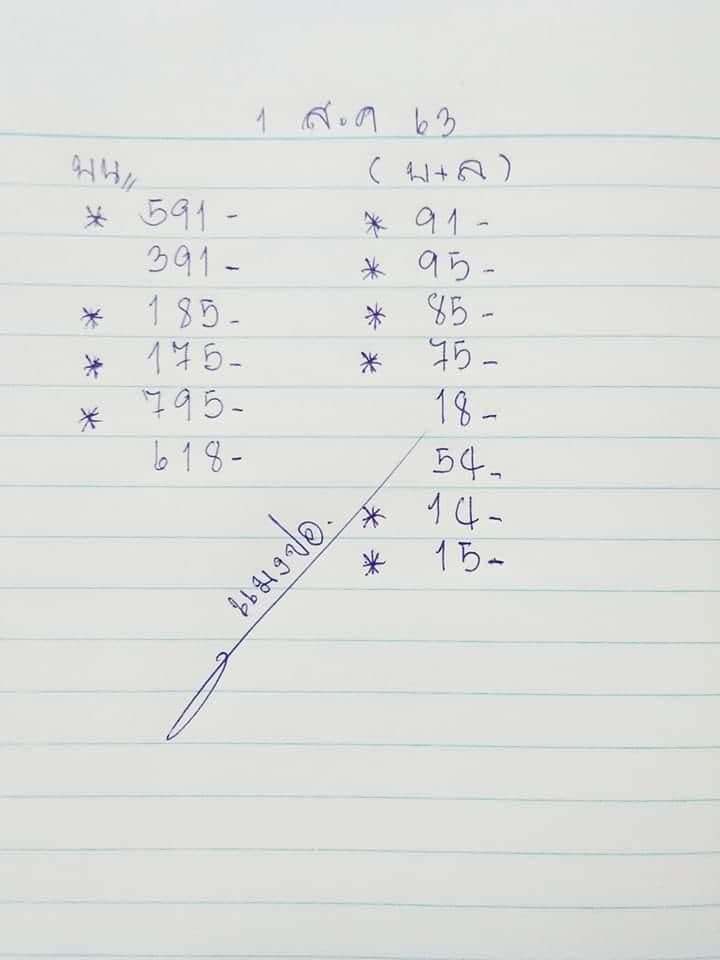 1 ส.ค 63
บน,, (บ+ล)
* 591- * 91-
391- * 95-
* 185- * 85-
* 175- * 75-
* 795- 18-
618- 54-
* 14-
* 15-
แมงปอ.